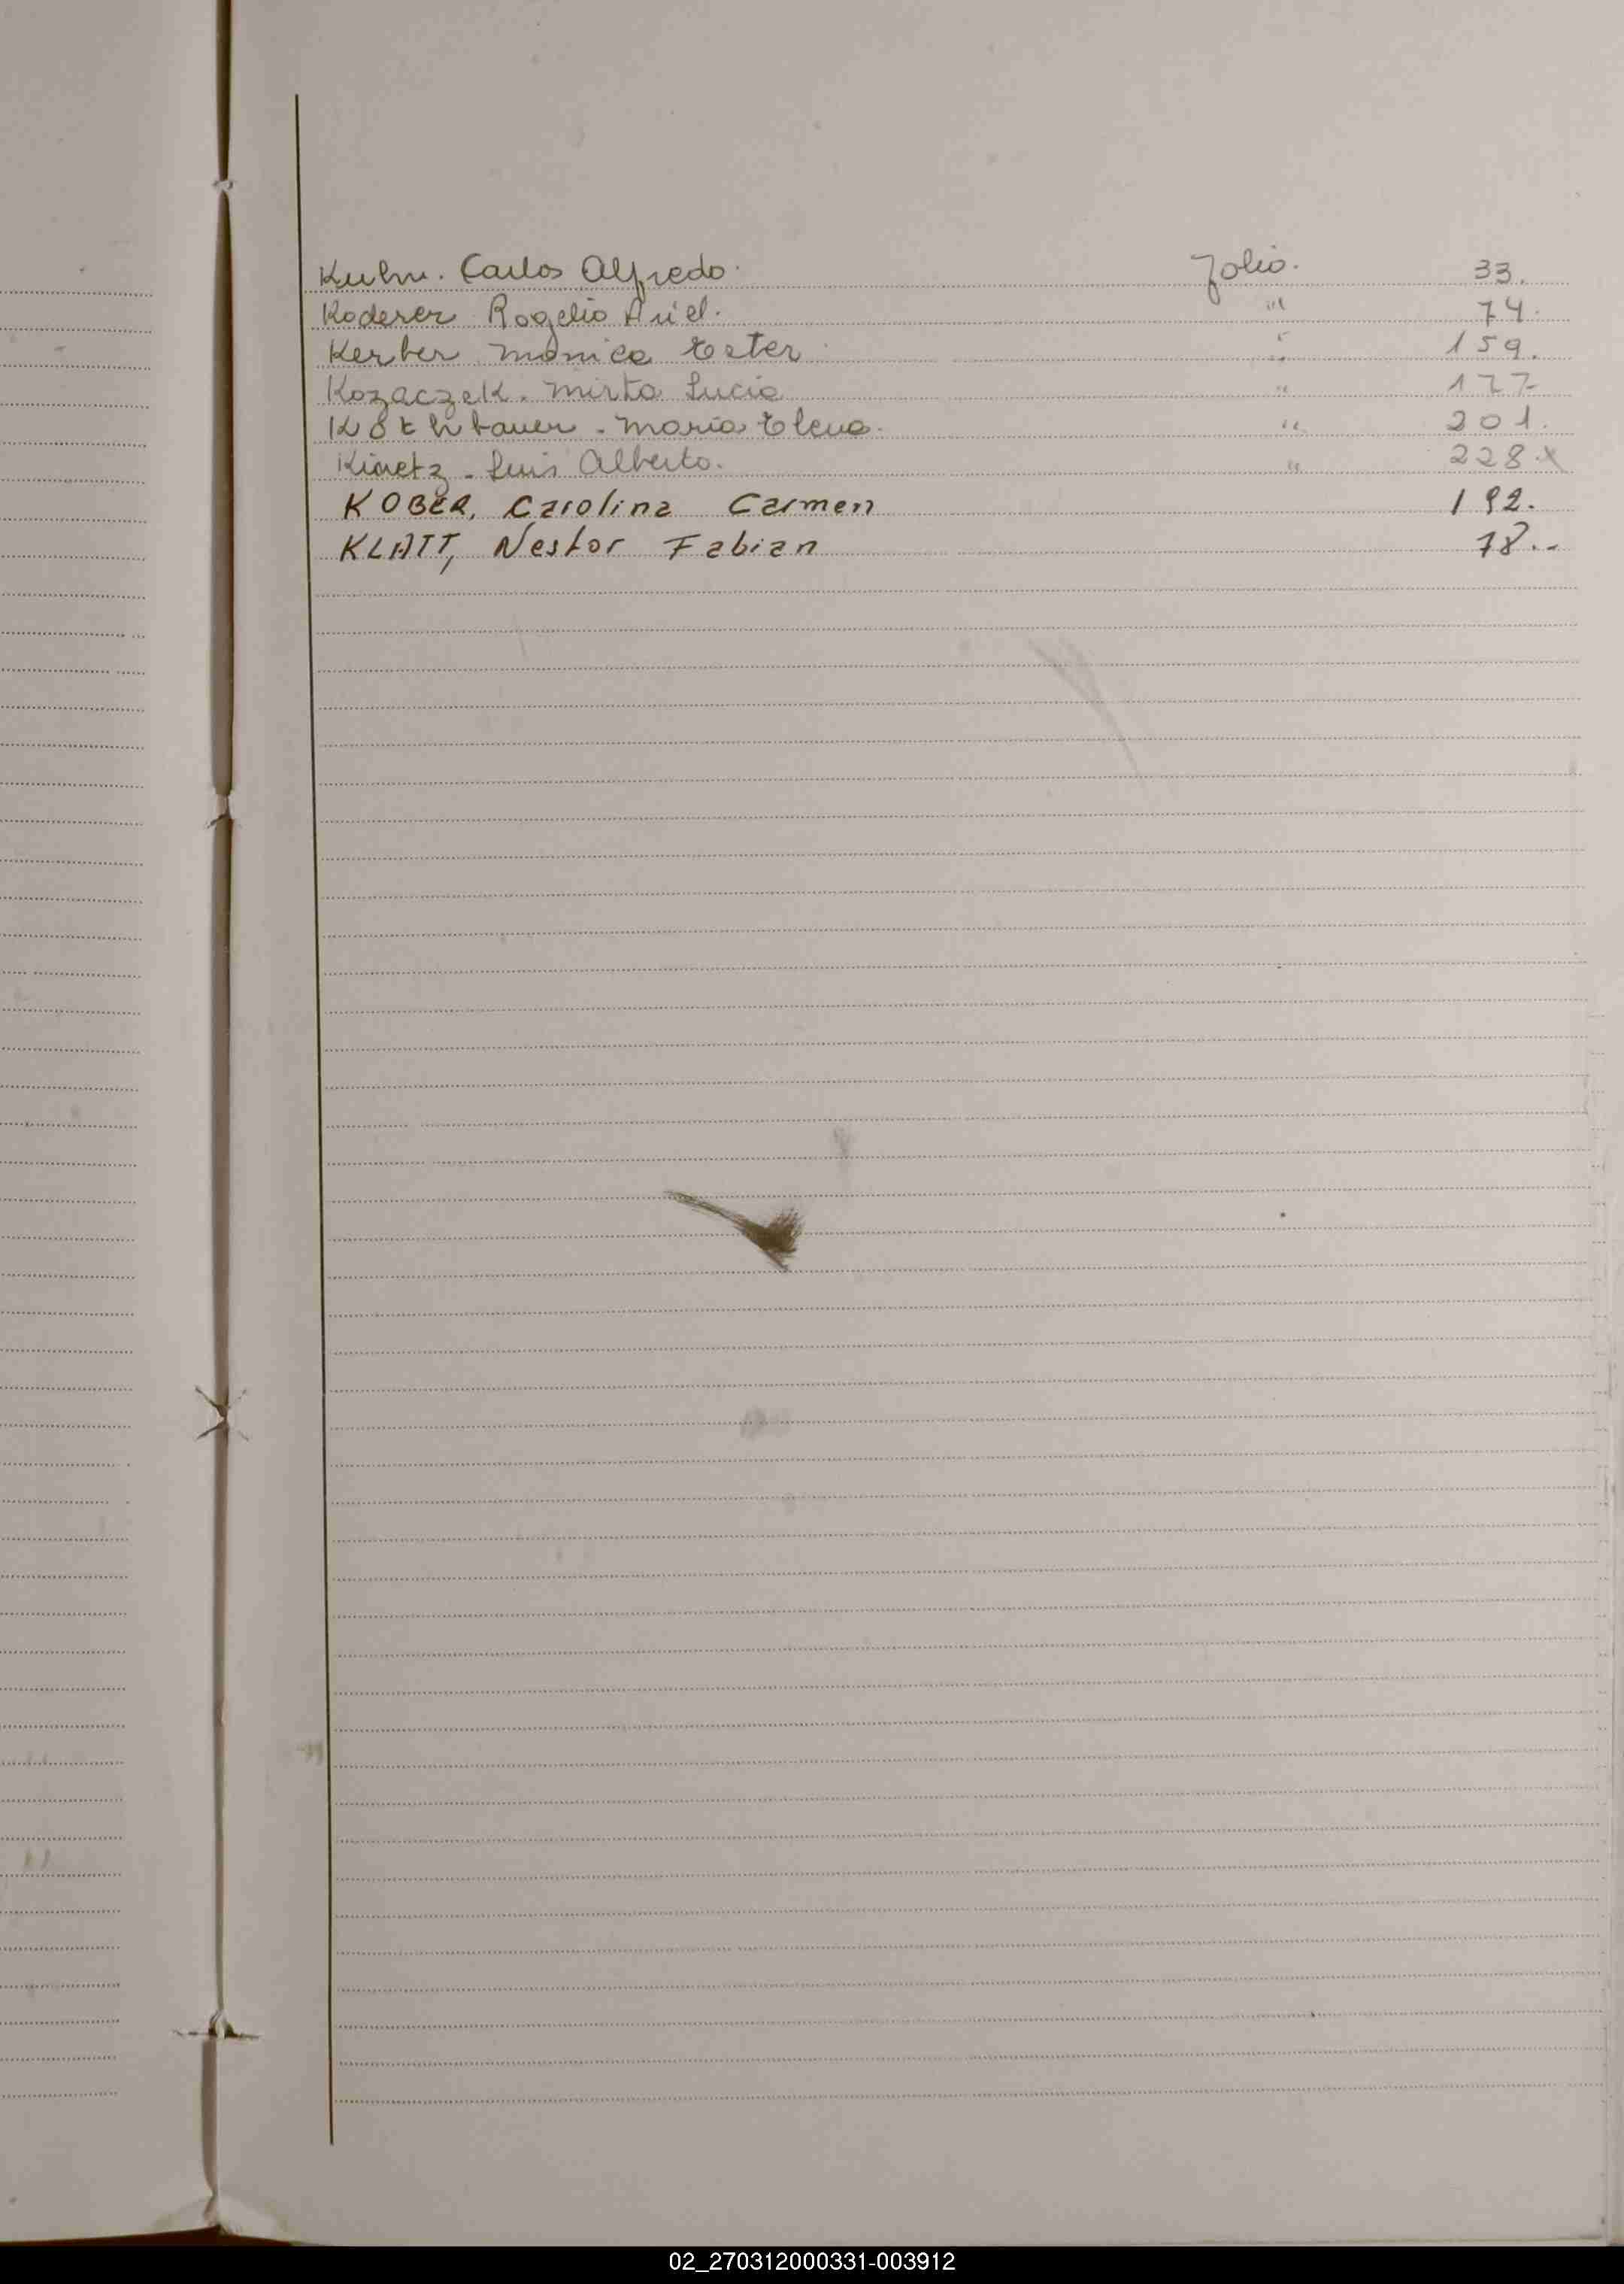 Kuhn. Carlos Alfredo. Folio. 33.
Koderer Rogelio Ariel. " 74.
Kerber Monica Ester " 159.
Kozaczek. Mirta Lucia " 177-
Köthbauer - Maria Elena. " 201.
Luis Alberto. " 228.x
KOBER, Carolina Carmen 192.
KLATT, Nestor Fabian 78.-
02_270312000331-003912